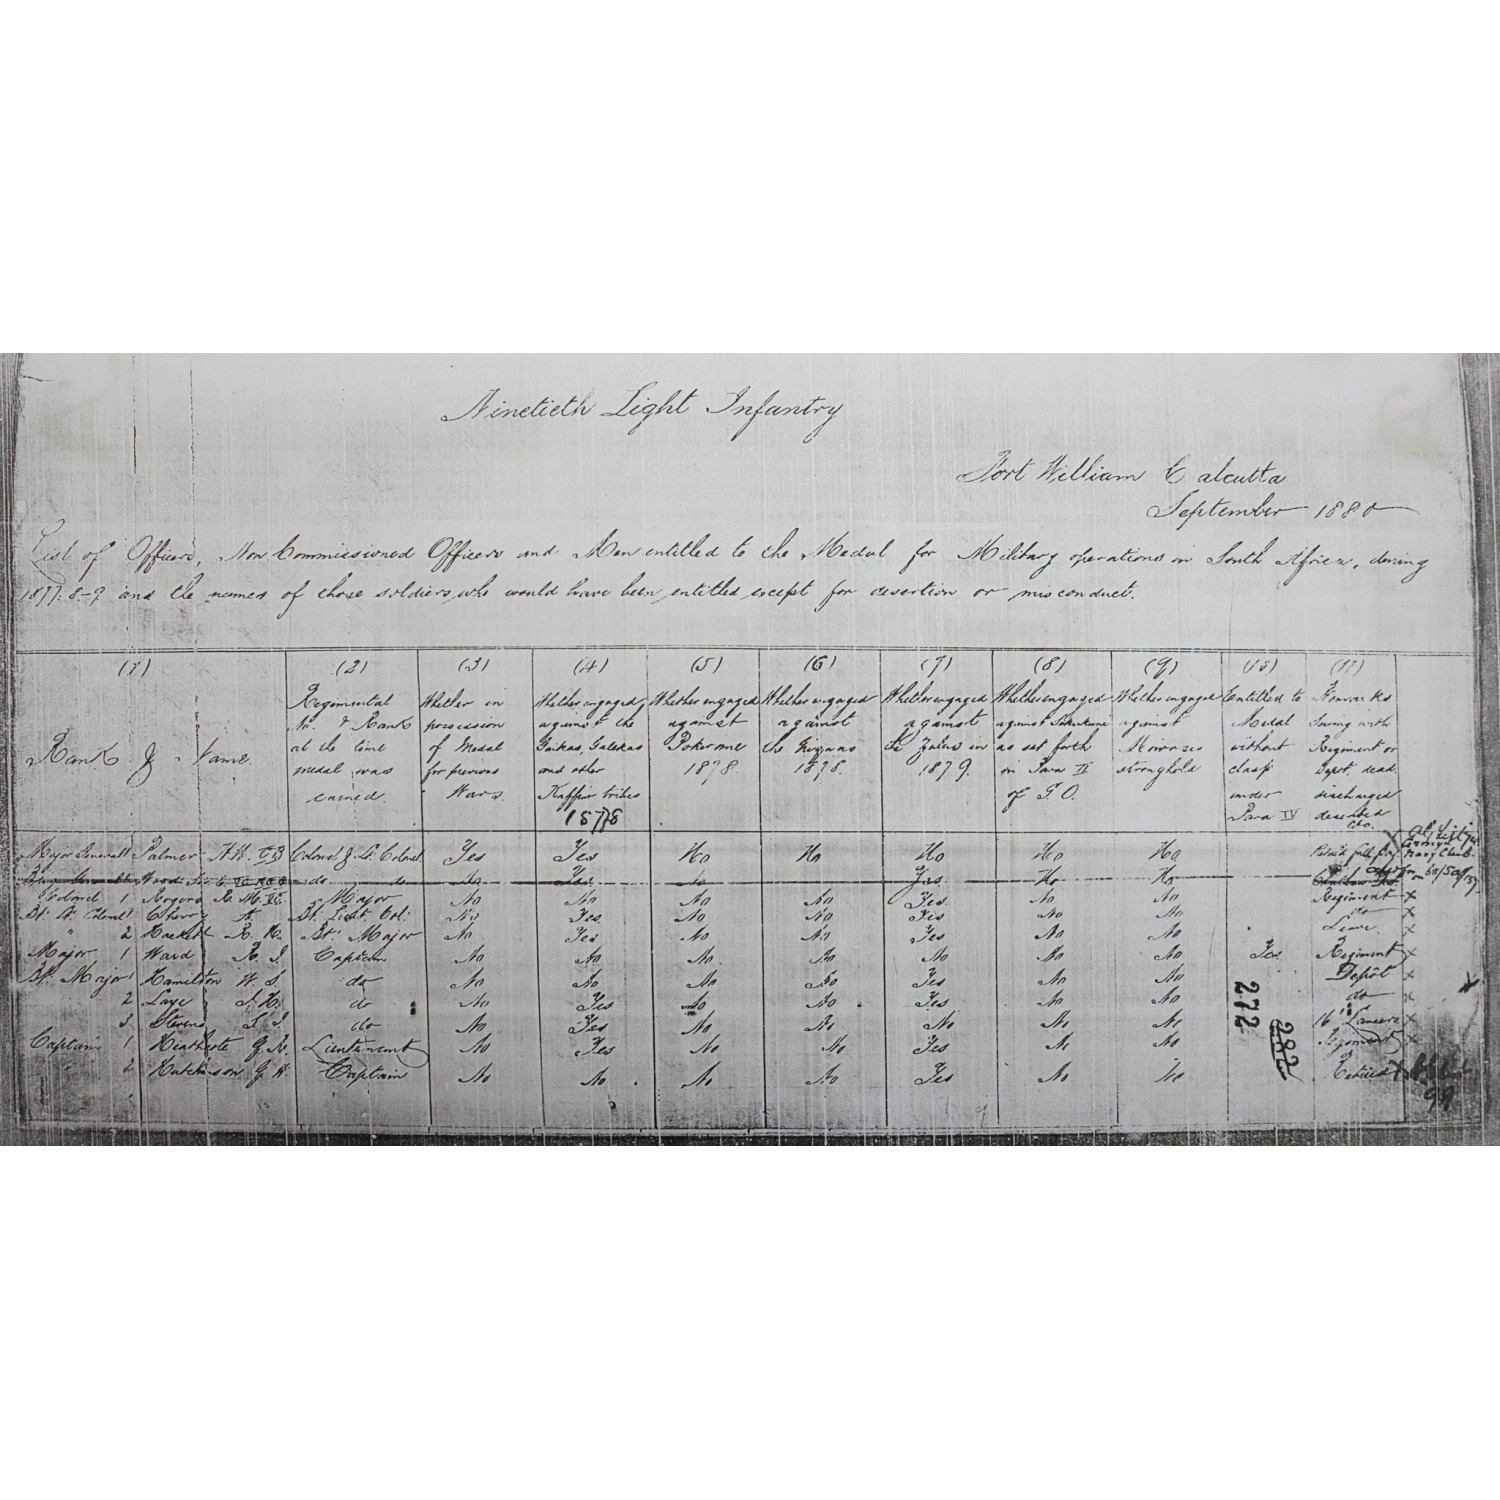 Ninetieth Light Infantry
Fort William Calcutta
September 1880
List of Officers, Non Commissioned Officers and Men entitled to the Medal for Military operations in South Africa, during
1877-8-9 and the names of those soldiers who would have been entitled except for desertion or misconduct.
(1) (2) (3) (4) (5) (6) (7) (8) (9) (10) (11)
Rank & Name
Regimental
No. & Rank
at the time
medal was
earned
Whether in
possession
of Medal
for previous
Wars
Whether engaged
against the
Gaikas, Galekas
and other
Kaffir tribes
1877/8
Whether engaged
against
Pokwane
1878
Whether engaged
against
the Griquas
1878.
Whether engaged
against
the Zulus in
1879.
Whether engaged
against Sekukuni
as set forth
in Para II
of G.O.
Whether engaged
against
Moirosi's
stronghold
Entitled to
Medal
without
clasp
under
Para IV
Remarks
Serving with
Regiment or
Depot, dead
discharged
deserted
&c.
Major General 1 Palmer H.W. CB Colonel & Lt. Colonel Yes Yes No No No No No Retired full pay
Wood do do No Yes No Yes No No
Colonel 1 Rogers R. M. VC Major No No No No Yes No No Regiment x
Bt. Lt. Colonel 1 Cherry A. Bt. Lieut. Col: No Yes No No Yes No No do x
" 2 Hackett R. H. Bt. Major No Yes No No Yes No No Leave x
Major 1 Ward R. J. Captain No No No No No No No Yes Regiment x
Bt. Major 1 Hamilton W. S. do No No No No Yes No No Depôt x
2 Laye J. H. do No Yes No No Yes No No do x
3 Stevens S. J. do No Yes No No No No No 16th Lancers x
Captain 1 Heathcote G. R. Lieutenant No Yes No No Yes No No Regiment x
2 Hutchinson G. H. Captain No No No No Yes No No Retired
272
282
99